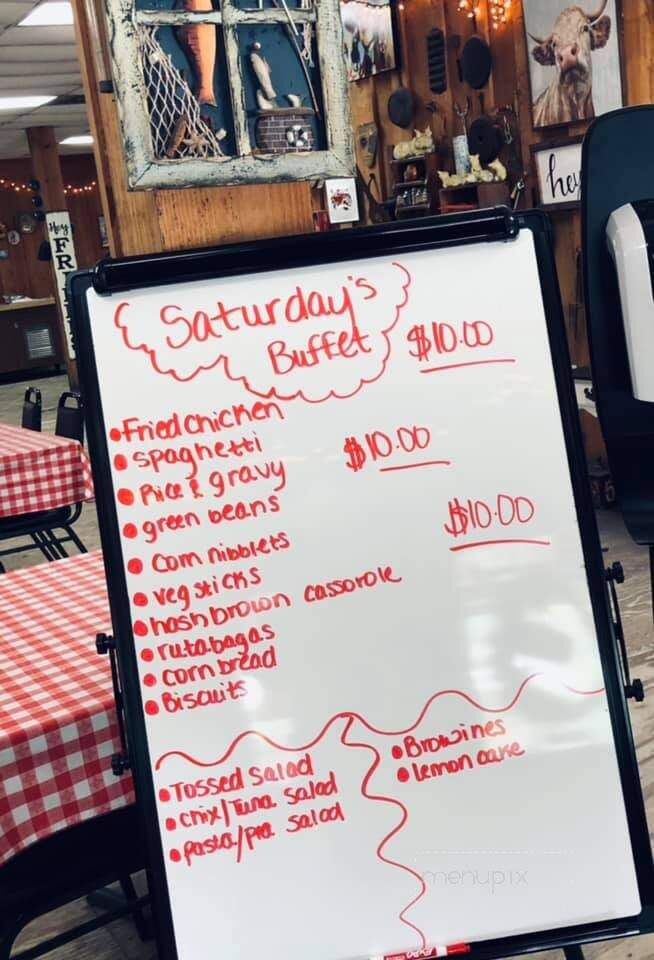 hey
Hey
FR
Saturday's
Buffet
$10.00
• Fried Chicken
• spaghetti
$10.00
• Rice & gravy
• green beans
$10.00
• corn nibblets
• veg sticks
• hashbrown casserole
• rutabagas
• corn bread
• Biscuits
• Tossed salad
• chix/Tuna salad
• pasta/pea salad
• Browines
• lemon cake
menupix
EXPO